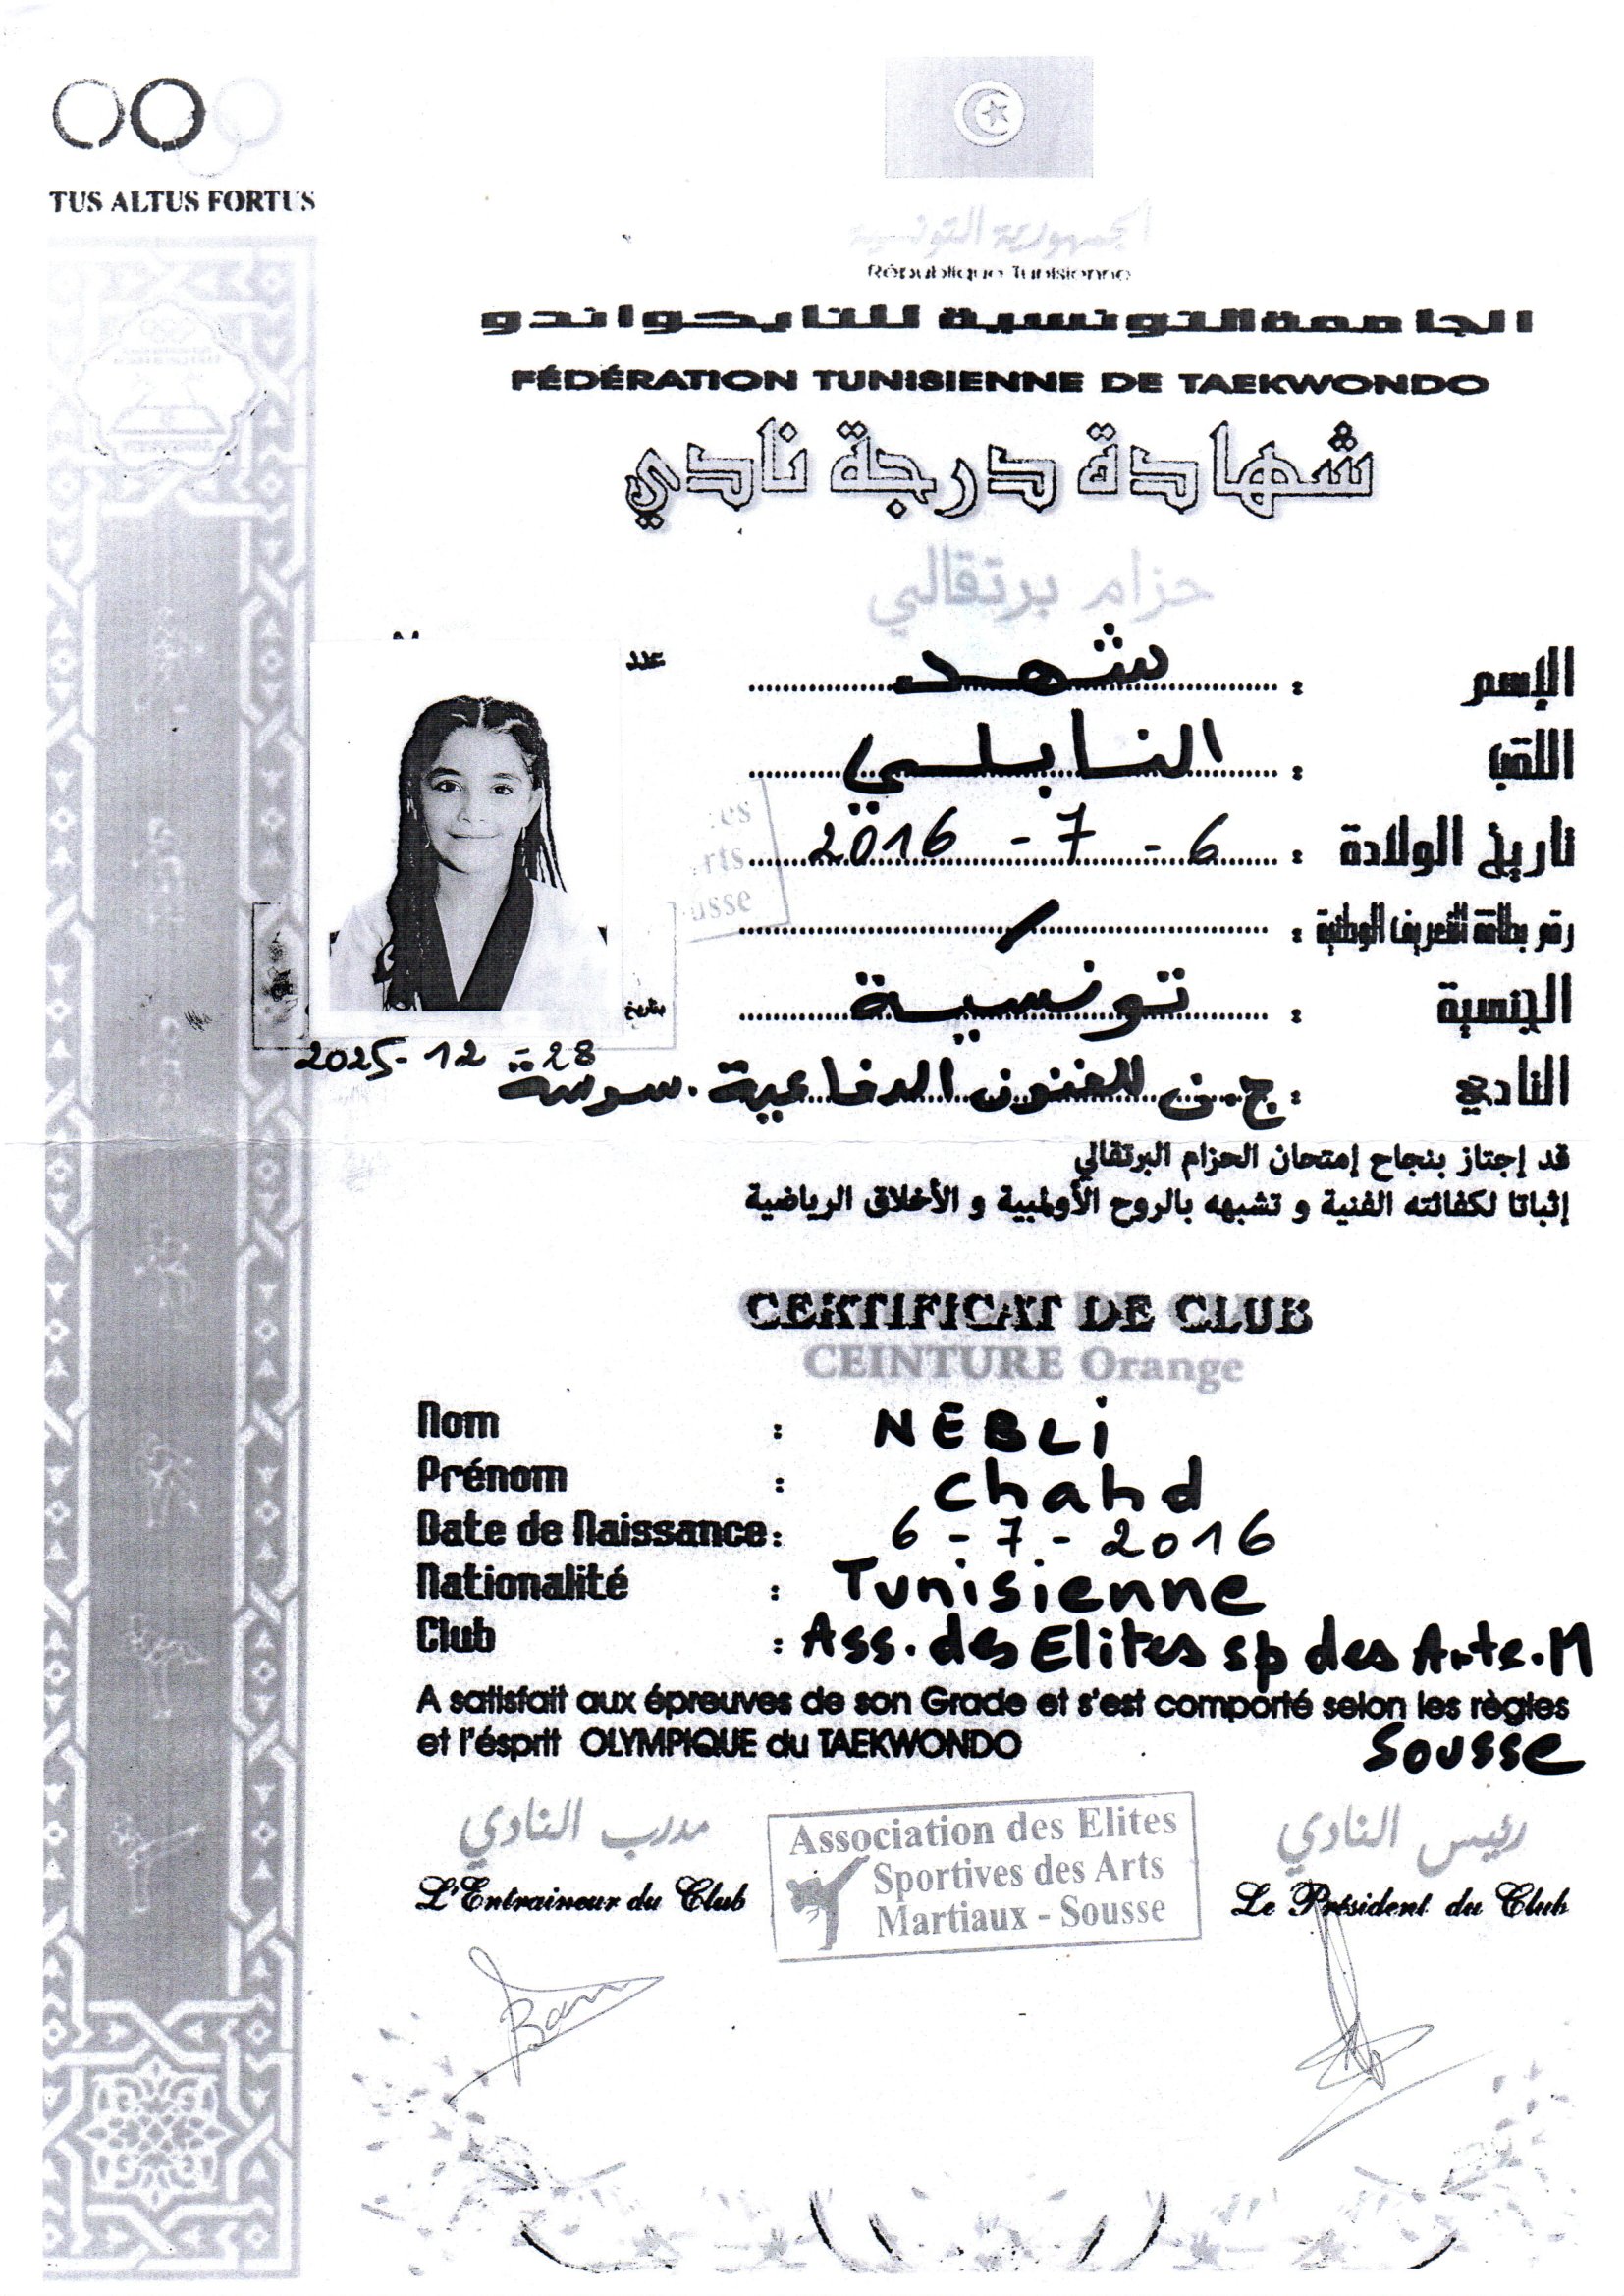 TUS ALTUS FORTUS
الجمهورية التونسية
République Tunisienne
الجامعة التونسية للتايكواندو
FÉDÉRATION TUNISIENNE DE TAEKWONDO
شهادة درجة نادي
حزام برتقالي
عدد
الإسم : شهد
اللقب : النابلي
تاريخ الولادة : 6 - 7 - 2016
رقم بطاقة التعريف الوطنية : /
الجنسية : تونسية
بتاريخ
2025-12-28
النادي : ج.ن للفنون الدفاعية.سوسة
قد إجتاز بنجاح إمتحان الحزام البرتقالي
إثباتا لكفائته الفنية و تشبهه بالروح الأولمبية و الأخلاق الرياضية
CERTIFICAT DE CLUB
CEINTURE Orange
Nom : NEBLi
Prénom : chahd
Date de Naissance: 6 - 7 - 2016
Nationalité : Tunisienne
Club : Ass. des Elites sp des Arts.M
A satisfait aux épreuves de son Grade et s'est comporté selon les règles
et l'ésprit OLYMPIQUE du TAEKWONDO
Sousse
مدرب النادي
رئيس النادي
L'Entraineur du Club
Le Président du Club
Association des Elites
Sportives des Arts
Martiaux - Sousse